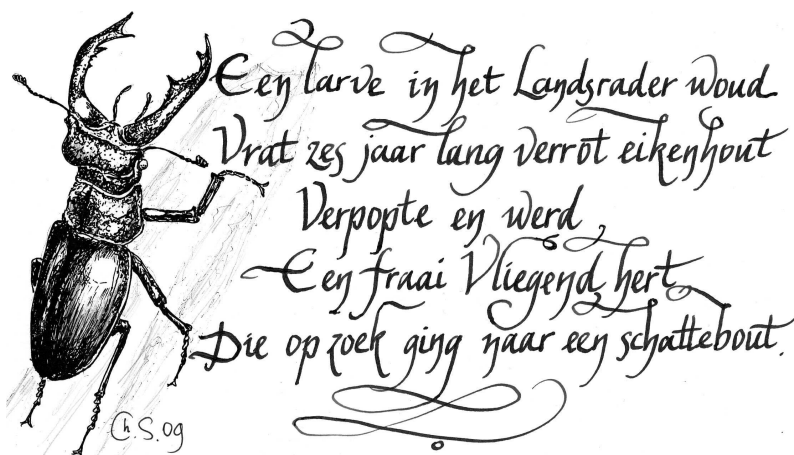 Een larve in het Landsrader woud
Vrat zes jaar lang verrot eikenhout
Verpopte en werd
Een fraai Vliegend hert
Die op zoek ging naar een schattebout.
Ch.S.09